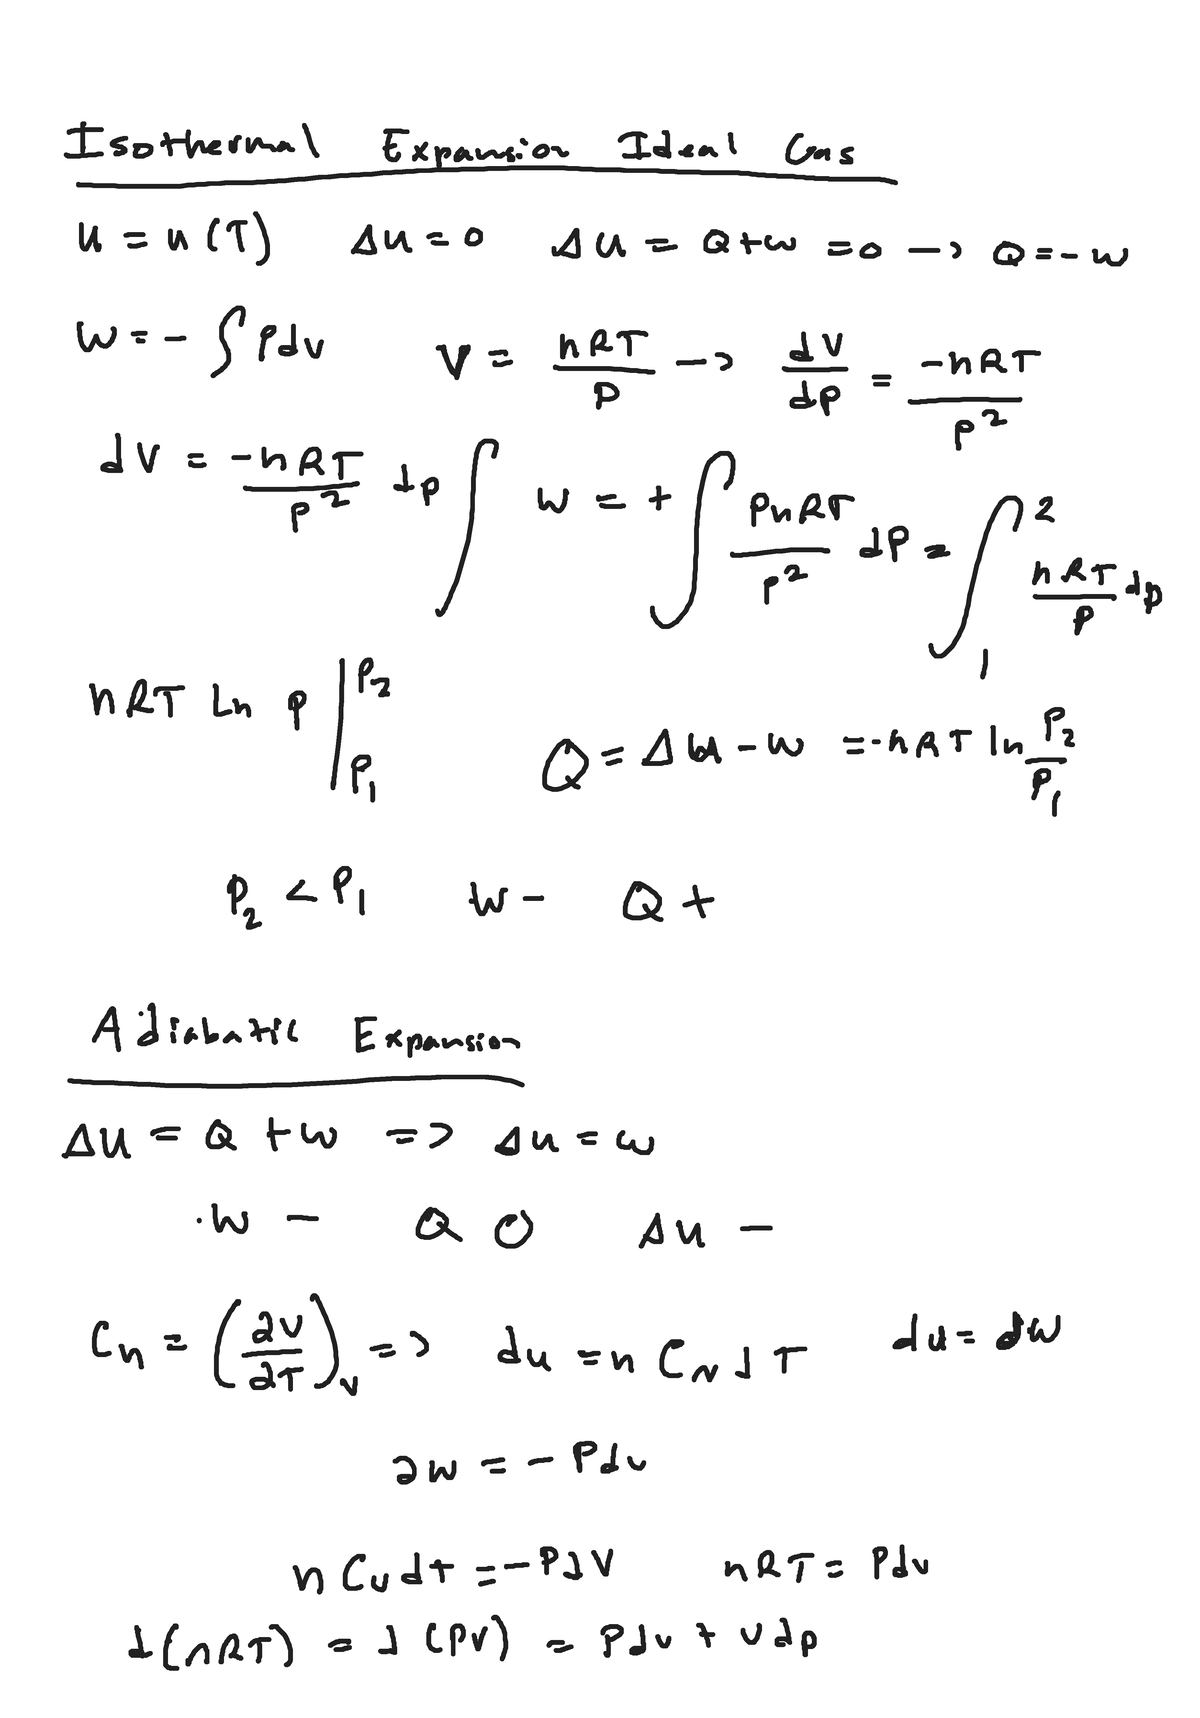 Isothermal Expansion Ideal Gas
u = u(T) Δu = 0 Δu = Q + w = 0 -> Q = -w
w = - ∫ Pdv V = nRT/P -> dV/dp = -nRT/p²
dV = -nRT/p² dp ∫ w = + ∫ PnRT/p² dP = ∫₁² nRT/P dp
nRT Ln P |P₂ P₁ Q = Δu - w = -nRT ln P₂/P₁
P₂ < P₁ w - Q +
Adiabatic Expansion
Δu = Q + w => Δu = w
·w - Q 0 Δu -
Cn = (∂v/∂T)v => du = n Cv dT du = dw
∂w = - Pdv
n Cv dt = -PdV nRT = Pdv
d(nRT) = d(PV) = Pdv + vdp